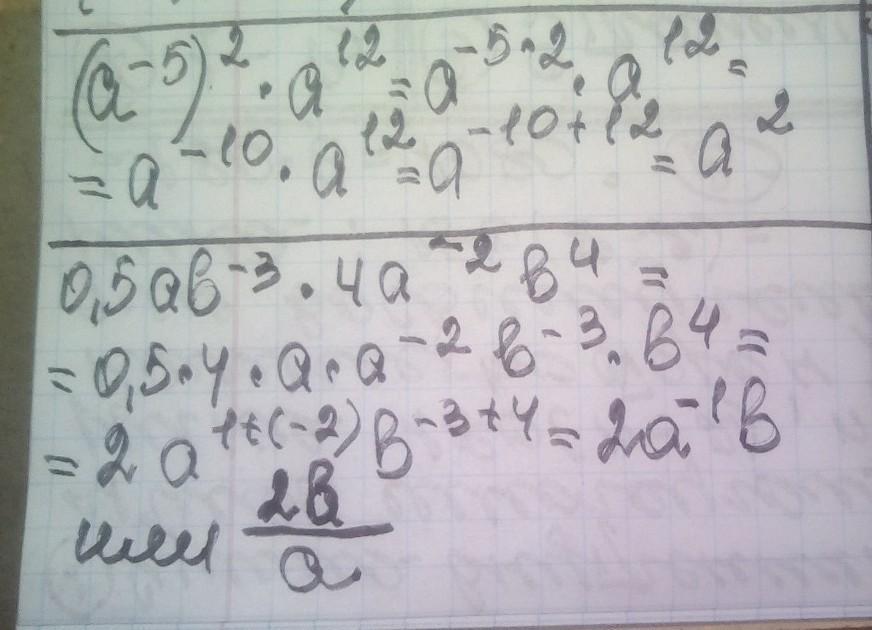 (a⁻⁵)² · a¹² = a⁻⁵·² · a¹² =
= a⁻¹⁰ · a¹² = a⁻¹⁰⁺¹² = a²
0,5ab⁻³ · 4a⁻² b⁴ =
= 0,5 · 4 · a · a⁻² b⁻³ · b⁴ =
= 2a¹⁺⁽⁻²⁾ b⁻³⁺⁴ = 2a⁻¹b
или 2b/a